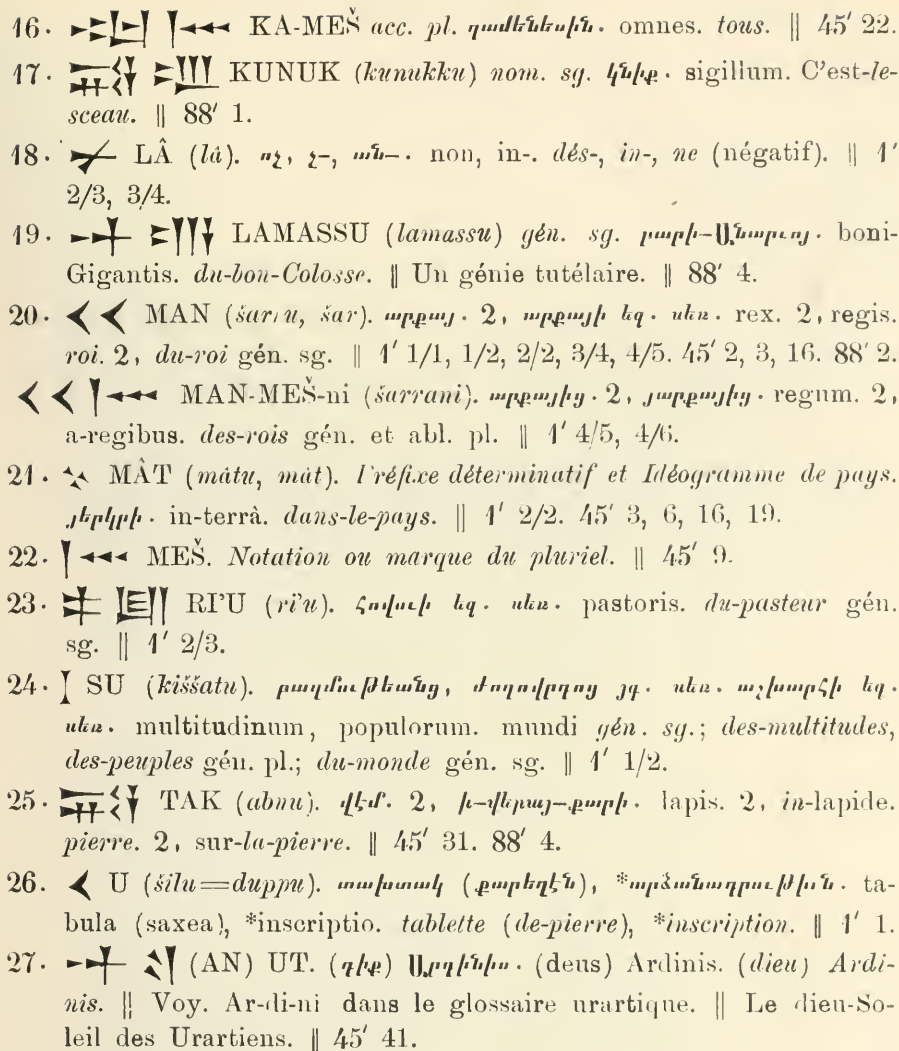 16. 𒅗 𒈨𒌍 KA-MEŠ acc. pl. զամենեսին. omnes. tous. || 45′ 22.
17. KUNUK (kunukku) nom. sg. կնիք. sigillum. C’est-le-
sceau. || 88′ 1.
18. LÂ (lâ). ոչ, չ-, ան-. non, in-. dés-, in-, ne (négatif). || 1′
2/3, 3/4.
19. LAMASSU (lamassu) gén. sg. բարի-Սնարւոյ. boni-
Gigantis. du-bon-Colosse. || Un génie tutélaire. || 88′ 4.
20. 𒌋 𒌋 MAN (šarru, šar). արքայ. 2, արքայի եզ. սեռ. rex. 2, regis.
roi. 2, du-roi gén. sg. || 1′ 1/1, 1/2, 2/2, 3/4, 4/5. 45′ 2, 3, 16. 88′ 2.
𒌋 𒌋 𒈨𒌍 MAN-MEŠ-ni (šarrani). արքայից. 2, յարքայից. regum. 2,
a-regibus. des-rois gén. et abl. pl. || 1′ 4/5, 4/6.
21. MÂT (mâtu, mât). Préfixe déterminatif et Idéogramme de pays.
յերկրի. in-terrà. dans-le-pays. || 1′ 2/2. 45′ 3, 6, 16, 19.
22. 𒈨𒌍 MEŠ. Notation ou marque du pluriel. || 45′ 9.
23. RI’U (ri’u). հովուի եզ. սեռ. pastoris. du-pasteur gén.
sg. || 1′ 2/3.
24. SU (kiššatu). բազմութեանց, ժողովրդոց յգ. սեռ. աշխարհի եզ.
սեռ. multitudinum, populorum. mundi gén. sg.; des-multitudes,
des-peuples gén. pl.; du-monde gén. sg. || 1′ 1/2.
25. TAK (abnu). վէմ. 2, ի-վերայ-քարի. lapis. 2, in-lapide.
pierre. 2, sur-la-pierre. || 45′ 31. 88′ 4.
26. 𒌋 U (šilu=duppu). տախտակ (քարեղէն), *արձանագրութիւն. ta-
bula (saxea), *inscriptio. tablette (de-pierre), *inscription. || 1′ 1.
27. 𒀭 𒌓 (AN) UT. (դիք) Արդինիս. (deus) Ardinis. (dieu) Ardi-
nis. || Voy. Ar-di-ni dans le glossaire urartique. || Le dieu-So-
leil des Urartiens. || 45′ 41.